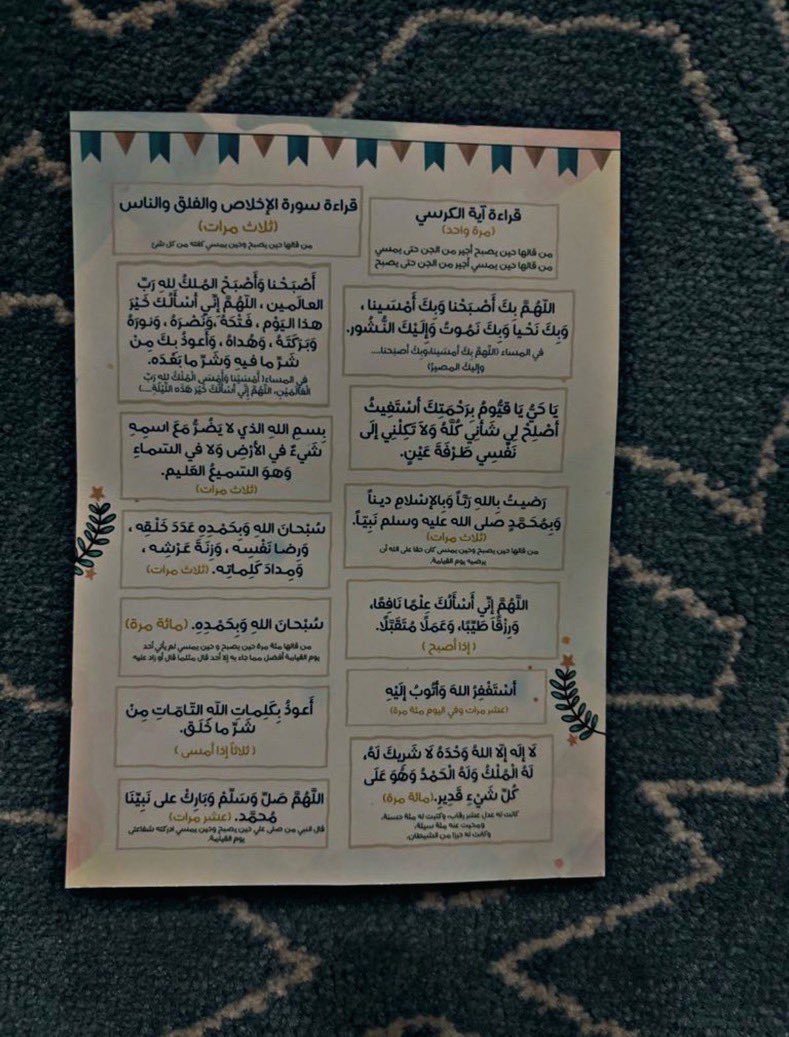 قراءة آية الكرسي
(مرة واحد)
من قالها حين يصبح أجير من الجن حتى يمسي
من قالها حين يمسي أجير من الجن حتى يصبح
اللَّهُمَّ بِكَ أَصْبَحْنا وَبِكَ أَمْسَينا ،
وَبِكَ نَحْيا وَبِكَ نَمُوتُ وَإِلَيْكَ النُّشُور.
في المساء (اللَّهُمَّ بِكَ أمسَينا،وبِكَ أصبَحنا....
وإليكَ المصيرُ)
يَا حَيُّ يَا قيُّومُ بِرَحْمَتِكَ أَسْتَغِيثُ
أَصْلِحْ لِي شَأْنِي كُلَّهُ وَلاَ تَكِلْنِي إِلَى
نَفْسِي طَرْفَةَ عَيْنٍ.
رَضيتُ بِاللهِ رَبَّاً وَبِالإسْلامِ ديناً
وَبِمُحَمَّدٍ صلى الله عليه وسلم نَبِيّاً.
(ثلاث مرات)
من قالها حين يصبح وحين يمسى كان حقا على الله أن
يرضيه يوم القيامة.
اللَّهُمَّ إِنِّي أَسْأَلُكَ عِلْمًا نَافِعًا،
وَرِزْقًا طَيِّبًا، وَعَمَلًا مُتَقَبَّلًا.
( إذا أصبح )
أسْتَغْفِرُ اللهَ وَأتُوبُ إلَيْهِ
(عشر مرات وفي اليوم مئة مرة)
لَا إلَه إلّا اللهُ وَحْدَهُ لَا شَرِيكَ لَهُ،
لَهُ الْمُلْكُ وَلَهُ الْحَمْدُ وَهُوَ عَلَى
كُلِّ شَيْءٍ قَدِيرِ.(مائة مرة)
كانت له عدل عشر رقاب، وكتبت له مئة حسنة،
ومحيت عنه مئة سيئة،
وكانت له حرزا من الشيطان.
قراءة سورة الإخلاص والفلق والناس
(ثلاث مرات)
من قالها حين يصبح وحين يمسى كفته من كل شئ
أَصْبَحْنا وَأَصْبَحَ المُلكُ للهِ رَبِّ
العالَمين ، اللَّهُمَّ إِنِّي أسْأَلُكَ خَيْرَ
هذا اليَوْم ، فَتْحَهُ ،وَنَصْرَهُ ، وَنورَهُ
وَبَرَكَتَهُ ، وَهُداهُ ، وَأَعوذُ بِكَ مِنْ
شَرِّ ما فيهِ وَشَرِّ ما بَعْدَه.
في المساء( أَمْسَيْنَا وَأَمْسَى الْمُلْكُ للهِ رَبِّ
الْعَالَمَيْنِ، اللَّهُمَّ إِنِّي أَسْأَلُكَ خَيْرَ هَذِهِ اللَّيْلَةِ....)
بِسمِ اللهِ الذي لا يَضُرُّ مَعَ اسمِهِ
شَيءٌ في الأرْضِ وَلا في السّماءِ
وَهوَ السّميعُ العَليم.
(ثلاث مرات)
سُبْحانَ اللهِ وَبِحَمْدِهِ عَدَدَ خَلْقِه ،
وَرِضا نَفْسِه ، وَزِنَةَ عَرْشِه ،
وَمِدادَ كَلِماتِه. (ثلاث مرات)
سُبْحانَ اللهِ وَبِحَمْدِهِ. (مائة مرة)
من قالها مئة مرة حين يصبح و حين يمسي لم يأتي أحد
يوم القيامة أفضل مما جاء به إلا أحد قال مثلما قال أو زاد عليه
أَعوذُ بِكَلِماتِ اللّهِ التّامّاتِ مِنْ
شَرِّ ما خَلَق.
( ثلاثاً إذا أمسى )
اللَّهُمَّ صَلِّ وَسَلِّمْ وَبَارِكْ على نَبِيِّنَا
مُحمَّد. (عشر مرات)
قال النبي من صلى علي حين يصبح وحين يمسي ادركته شفاعتى
يوم القيامة.